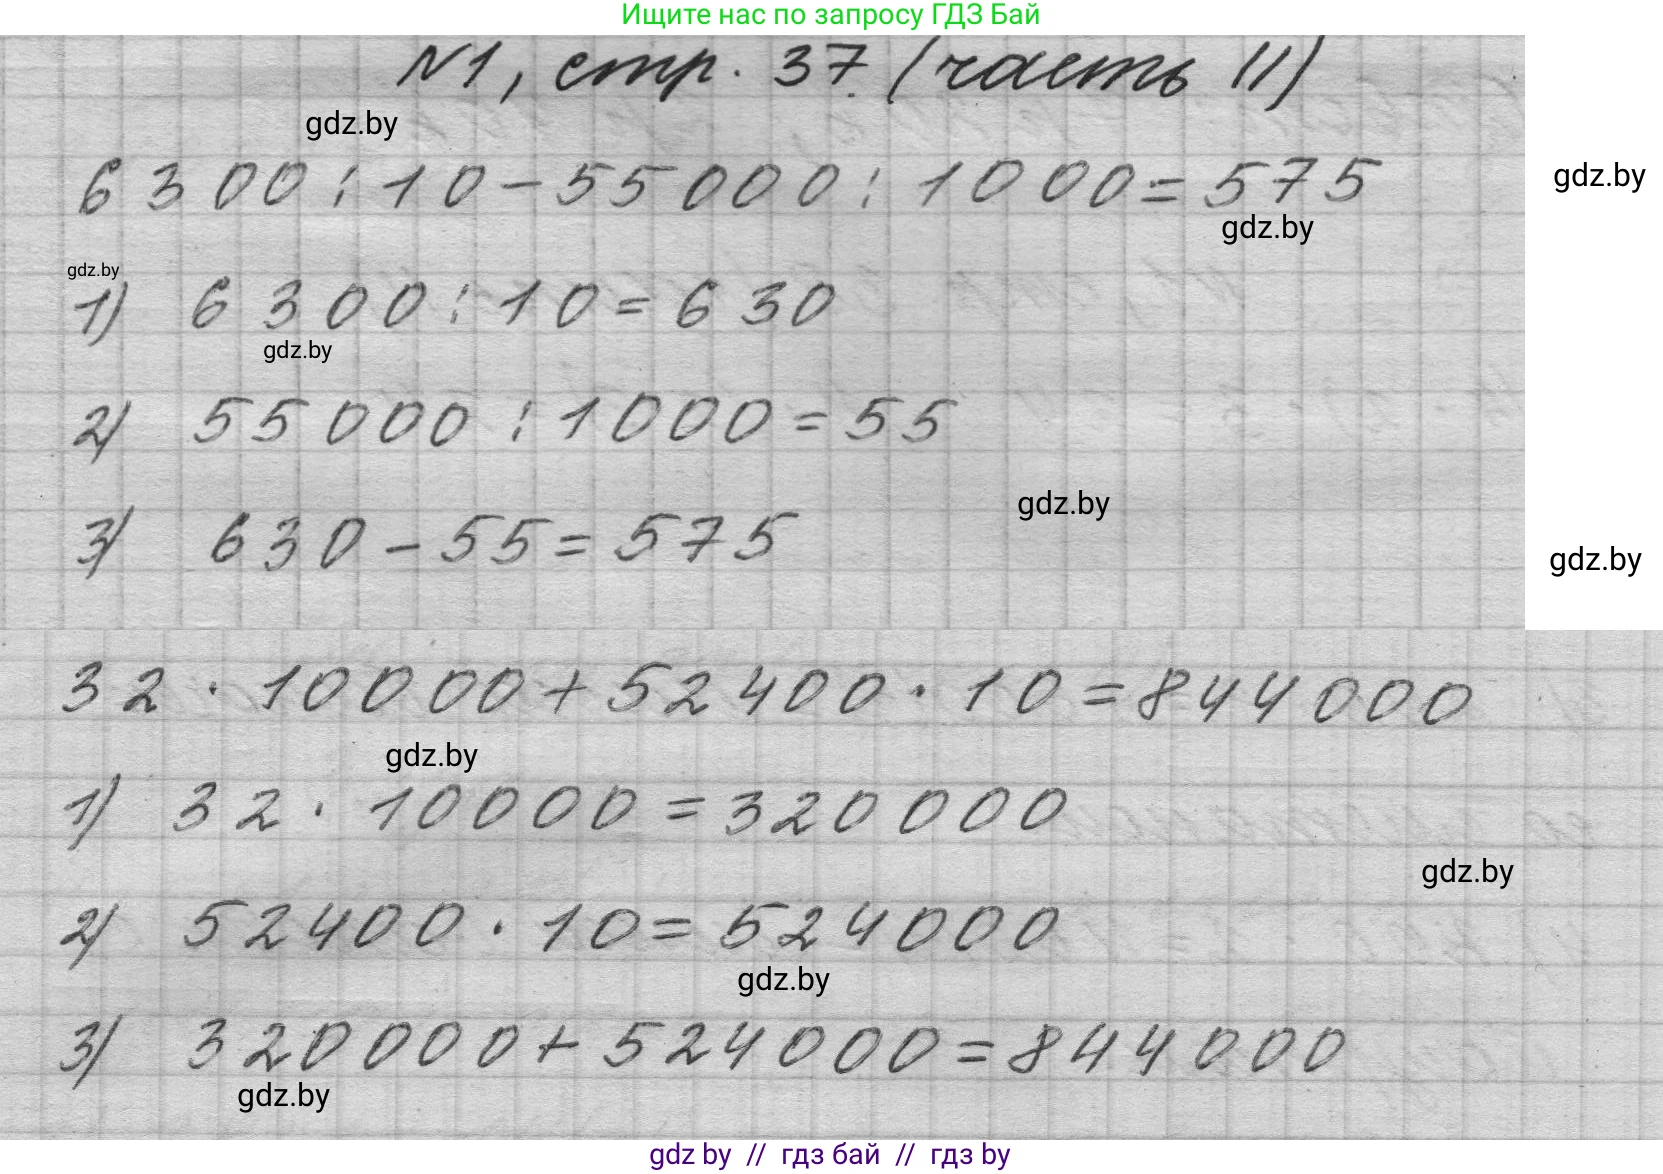 Ищите нас по запросу ГДЗ Бай
N1, стр. 37. (часть II)
gdz.by
6300:10-55000:1000=575
gdz.by
gdz.by
gdz.by
1) 6300:10=630
gdz.by
2) 55000:1000=55
gdz.by
3) 630-55=575
gdz.by
32·10000+52400·10=844000
gdz.by
1) 32·10000=320000
gdz.by
2) 52400·10=524000
gdz.by
3) 320000+524000=844000
gdz.by
gdz by // гдз бай // гдз by